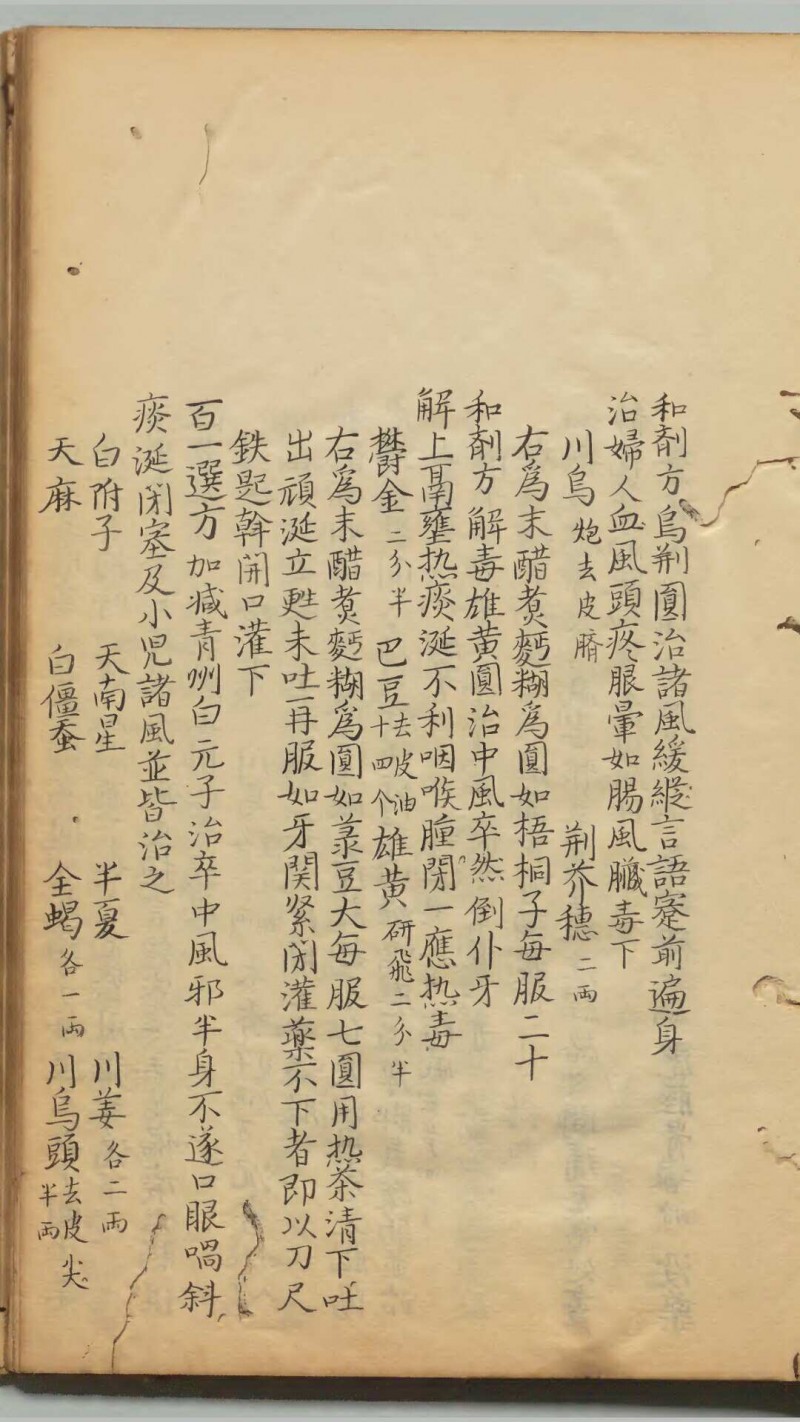 和剤方烏荆圓治諸風緩縱言語蹇前遍身
治婦人血風頭疼眼暈如腸風臓毒下
川烏炮去皮臍 荆芥穗二両
右為末醋煑麪糊為圓如梧桐子每服二十
和剤方解毒雄黄圓治中風卒然倒仆牙
解上鬲壅热痰涎不利咽喉腫閉一應热毒
欝金二分半 巴豆去皮油十四个 雄黄研飛二分半
右為末醋煑麪糊為圓如菉豆大每服七圓用热茶清下吐
出頑涎立甦未吐再服如牙関緊閉灌藥不下者即以刀尺
鉄匙斡開口灌下
百一選方加减青州白元子治卒中風邪半身不遂口眼喎斜
痰涎閉塞及小児諸風並皆治之
白附子 天南星 半夏 川姜各二両
天麻 白僵蚕 全蝎各一両 川烏頭去皮尖半両